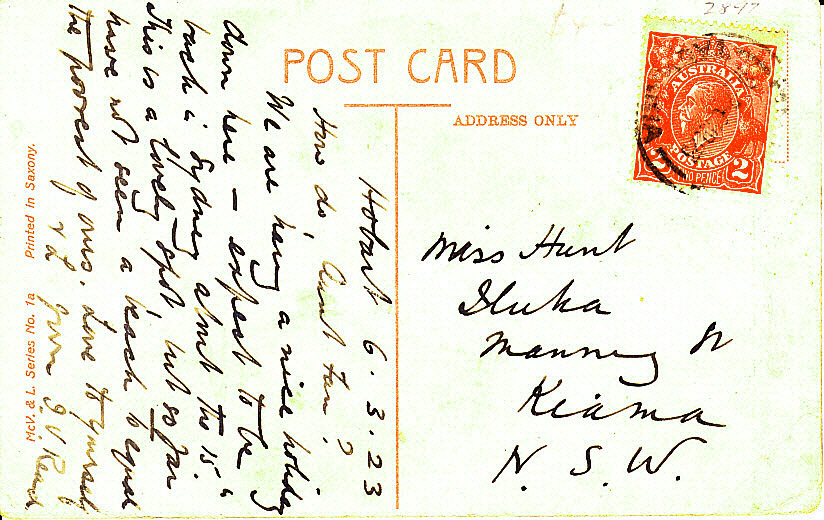 2847
POST CARD
ADDRESS ONLY
AUSTRALIA
POSTAGE
TWO PENCE 2
Hobart 6.3.23
How do, Aunt Fan?
We are having a nice holiday
down here – expect to be
back in Sydney about the 15th
This is a lovely spot, but so far
have not seen a beach to equal
the poorest of ours. Love to yourself
& L from
Miss Hunt
Iluka
Manning St
Kiama
N. S. W.
McV. & L. Series No. 1a Printed in Saxony.